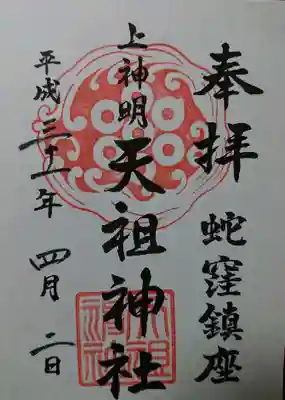 奉拝
蛇窪鎮座
上神明
天祖神社
平成三十一年
四月二日